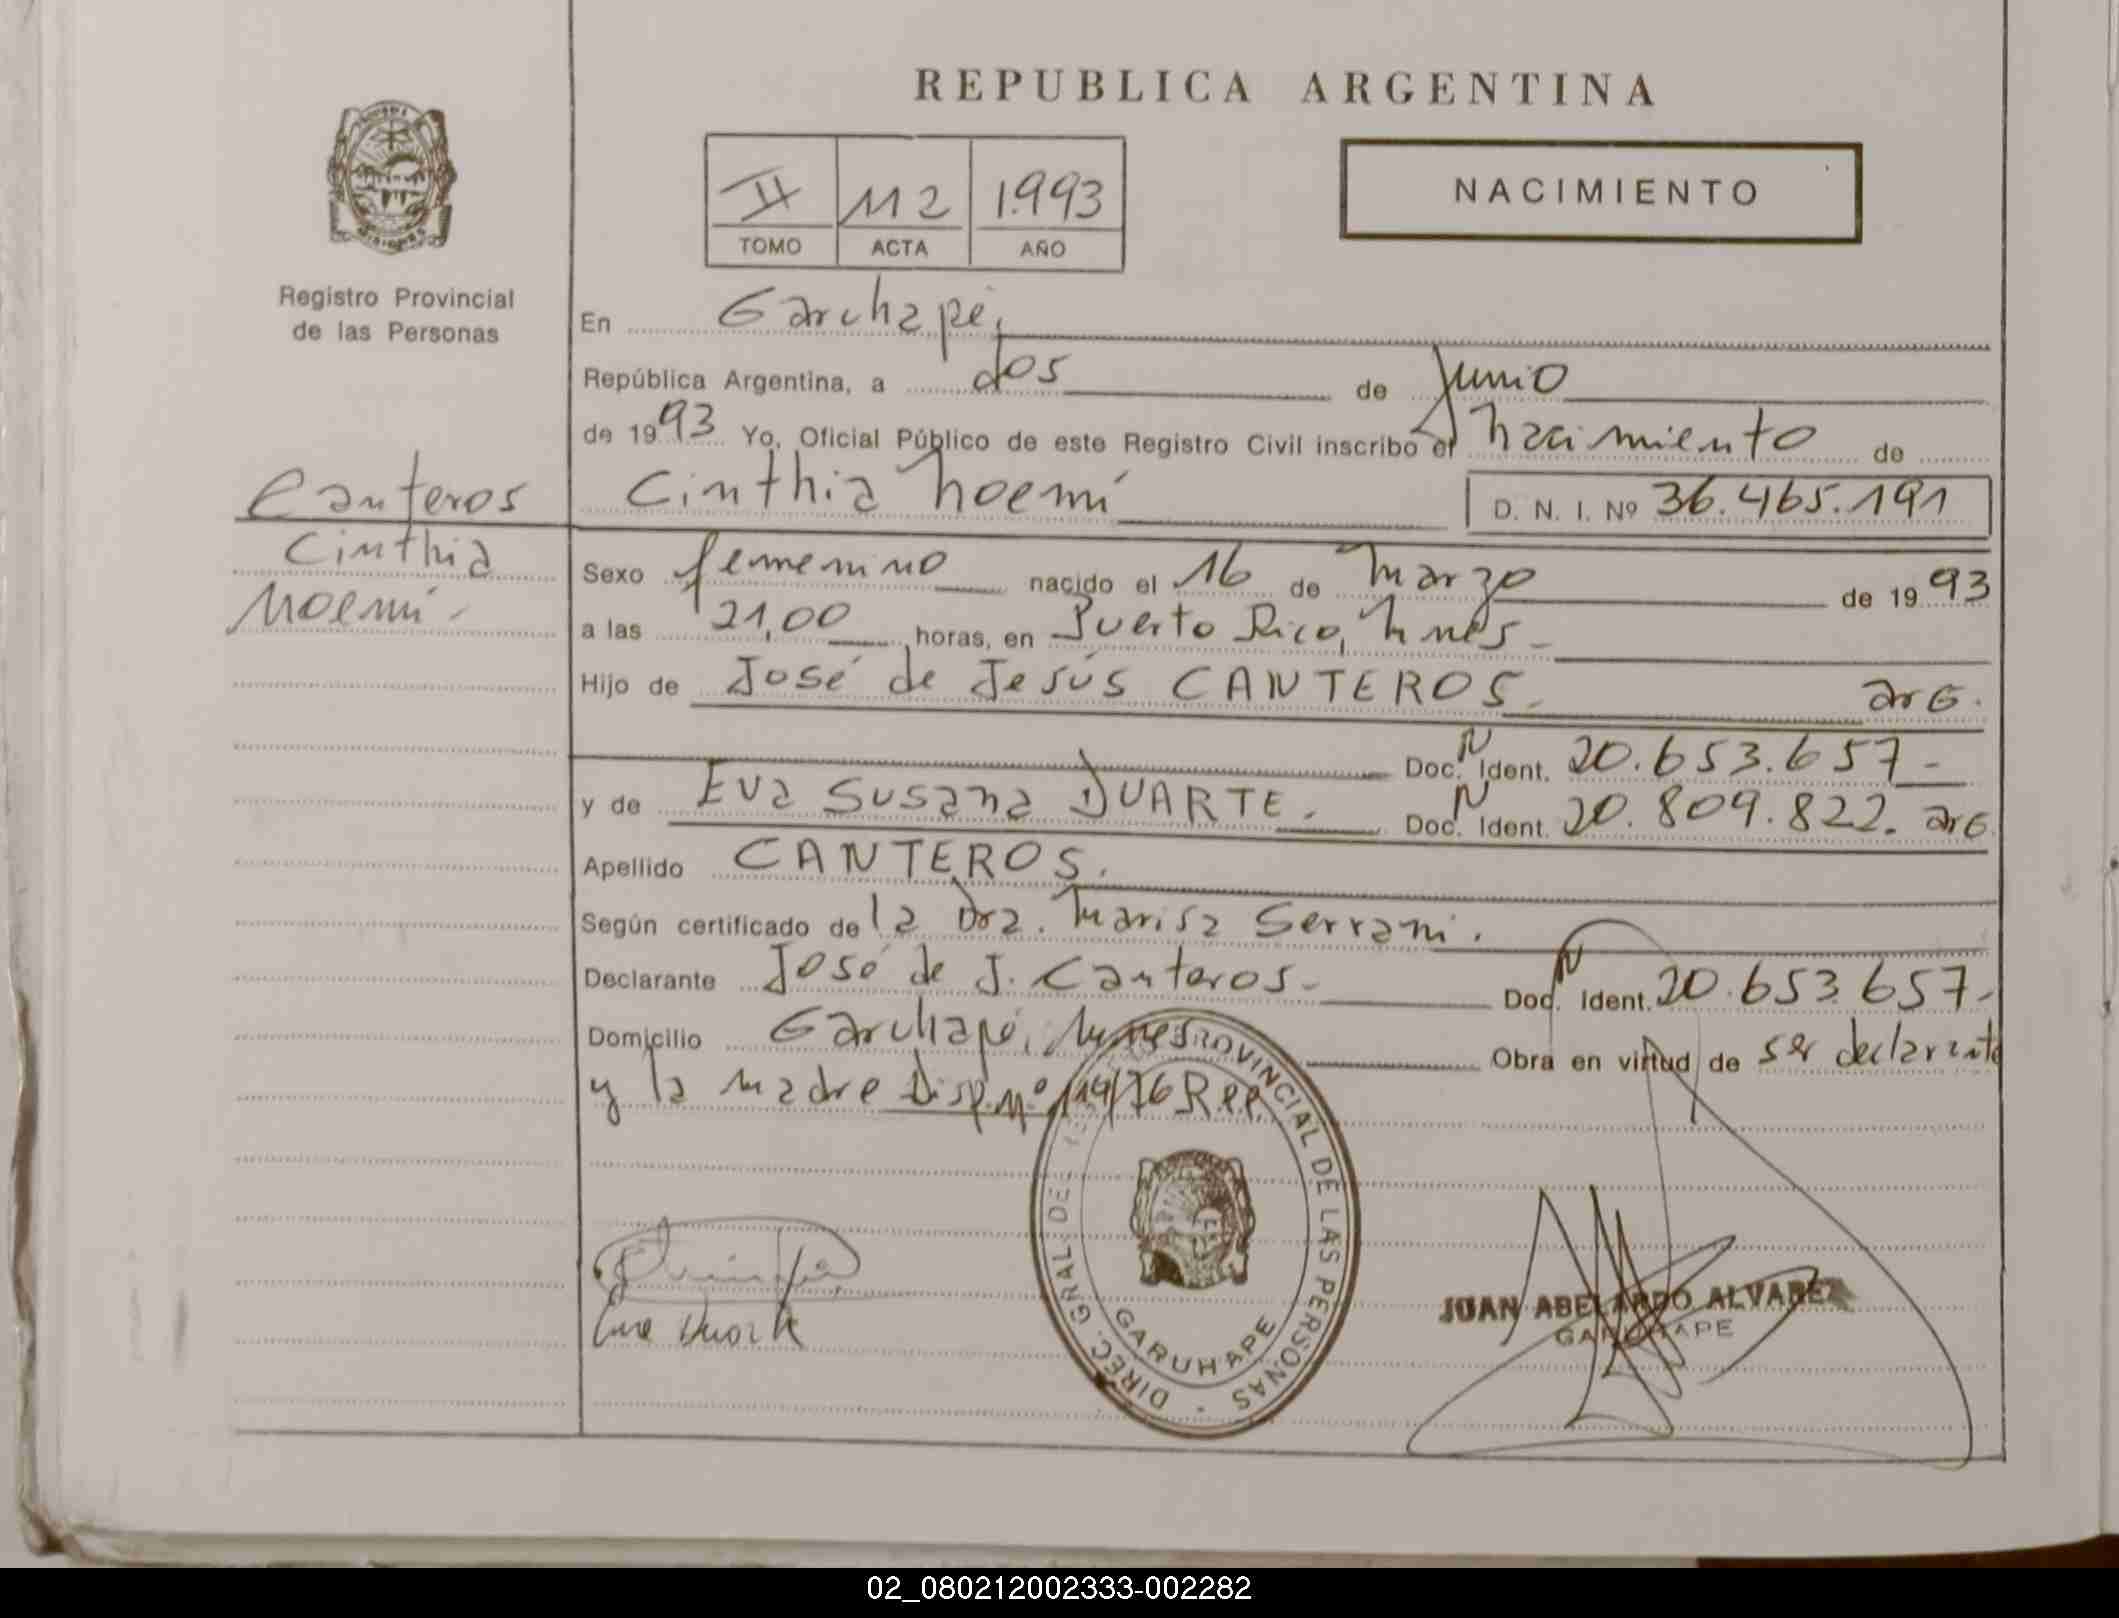 REPUBLICA ARGENTINA
II 112 1993
TOMO ACTA AÑO
NACIMIENTO
Registro Provincial
de las Personas
En Garuhapé,
República Argentina, a dos de Junio
de 1993 Yo, Oficial Público de este Registro Civil inscribo el nacimiento de
Canteros
Cinthia
Noemí.
Cinthia Noemí D. N. I. Nº 36.465.191
Sexo femenino nacido el 16 de Marzo de 1993
a las 21,00 horas, en Puerto Rico, Mnes -
Hijo de José de Jesús CANTEROS. arg.
Doc. N Ident. 20.653.657-
y de Eva Susana DUARTE. Doc. N Ident. 20.809.822. arg
Apellido CANTEROS.
Según certificado de la Dra. Marisa Serrani.
Declarante José de J. Canteros- Doc. N Ident. 20.653.657-
Domicilio Garuhapé, Mnes Obra en virtud de ser declarante
y la madre Disp. Nº 119/76 R.P.P.
DIREC. GRAL. DEL PROVINCIAL DE LAS PERSONAS
GARUHAPE
JUAN ABELARDO ALVAREZ
GARUHAPE
02_080212002333-002282